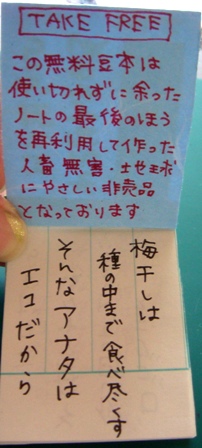 TAKE FREE
この無料豆本は
使い切れずに余った
ノートの最後のほう
を再利用して作った
人畜無害・土せ球
にやさしい非売品
となっております
梅干しは
種の中まで食べ尽くす
そんなアナタは
エコだから